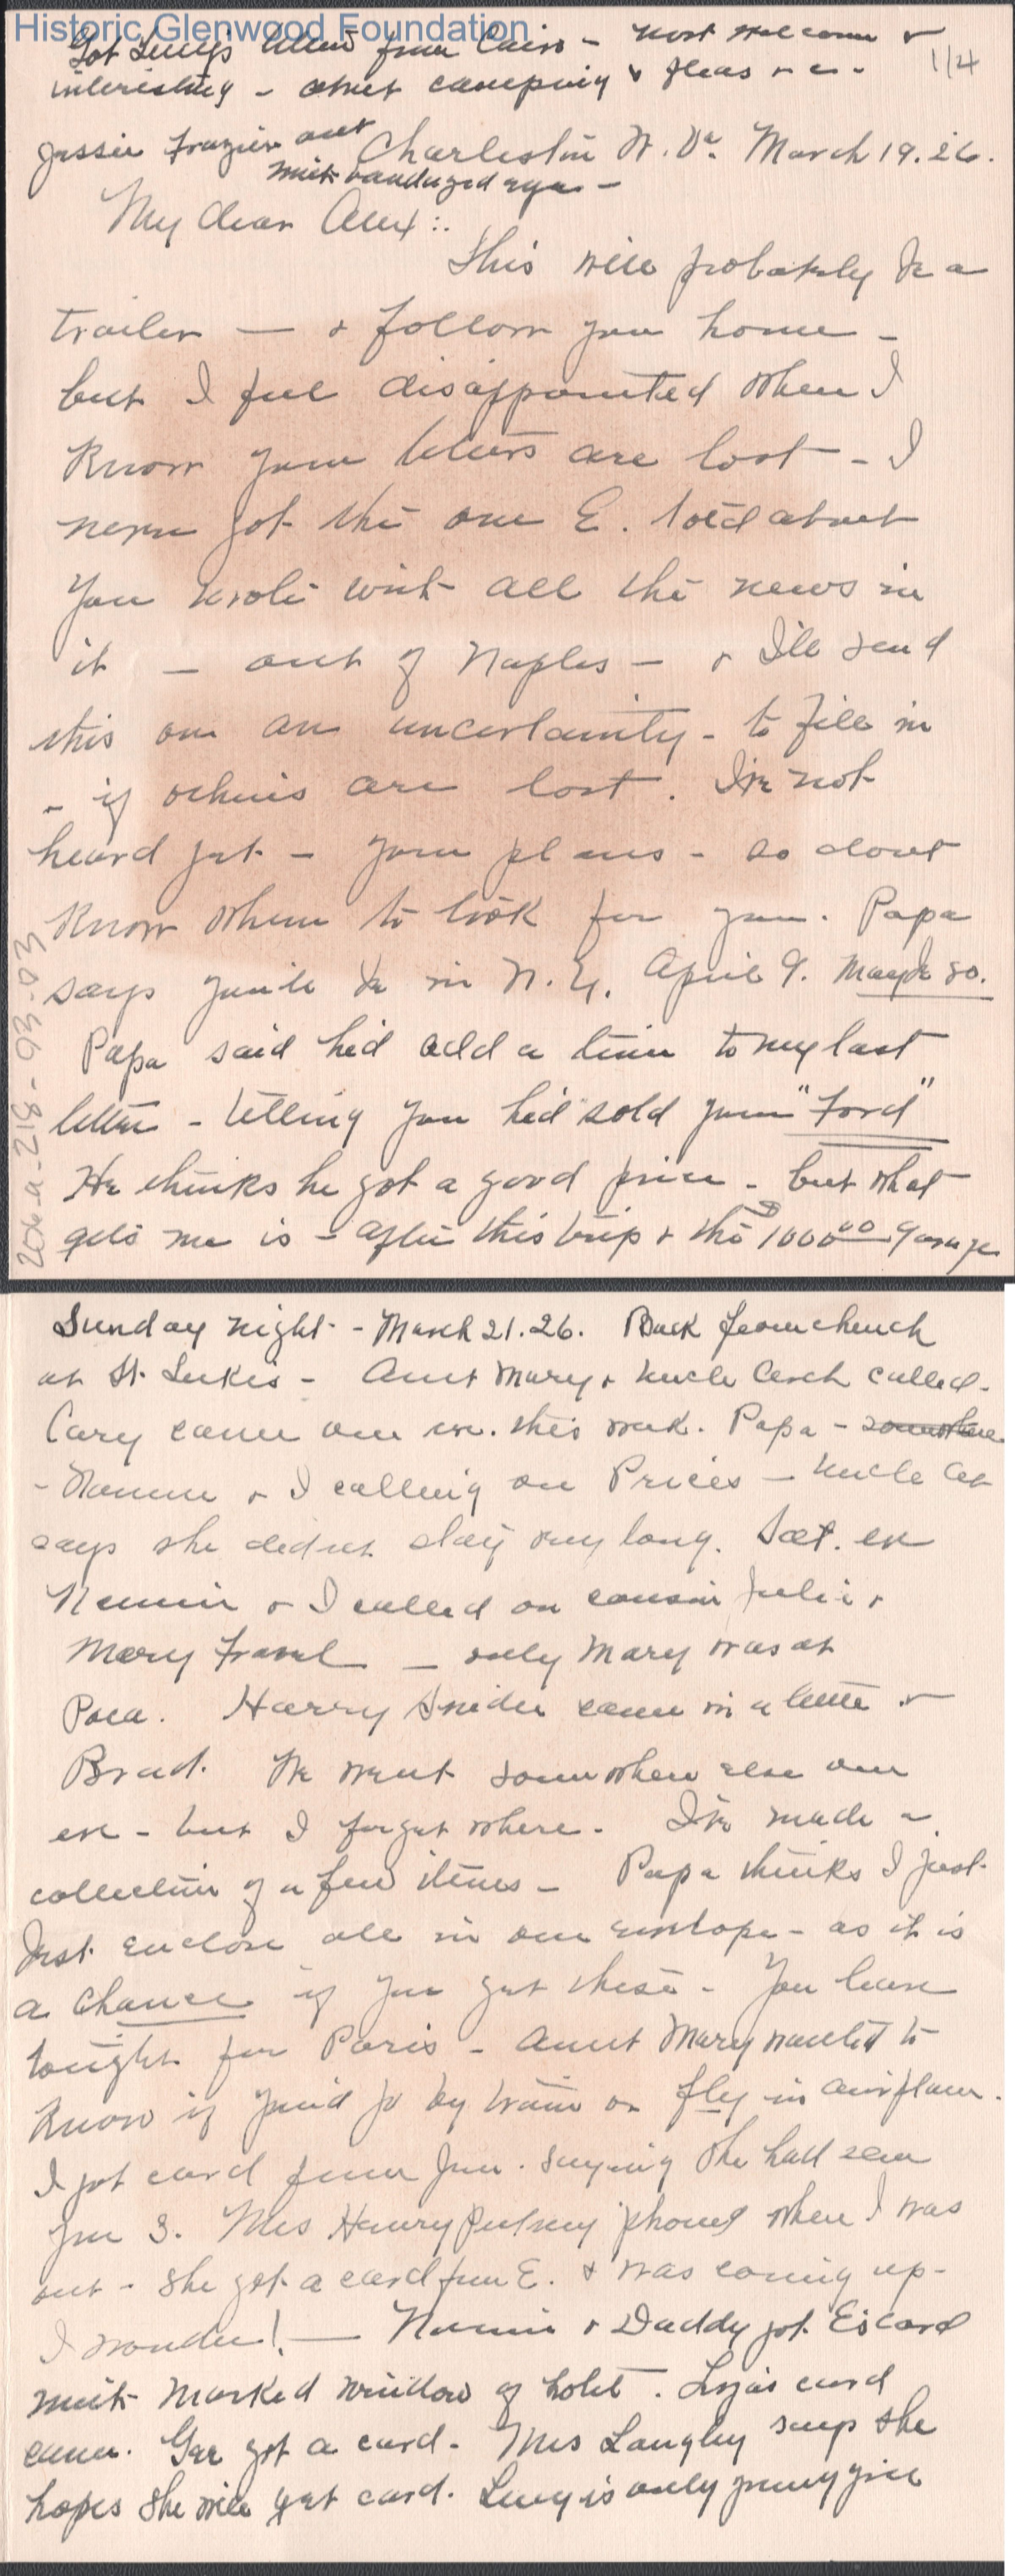 Historic Glenwood Foundation
Got Lucy's letter from Cairo - most welcome &
interesting - about camping & fleas & c -
1/4
Jessie Frazier out
with bandaged eyes -
Charleston W. Va. March 19. 26.
My dear Alex :.
This will probably be a
trailer — & follow you home -
but I feel disappointed when I
know your letters are lost - I
never got the one E. told about
you wrote with all the news in
it - out of Naples - & I'll send
this on an uncertainty - to fill in
- if others are lost. I've not
heard yet - your plans - so dont
know when to look for you. Papa
says you'll be in N. Y. April 9. Maybe so.
Papa said he'd add a line to my last
letter - telling you he'd sold your "Ford"
He thinks he got a good price - but what
gets me is - after this trip & the 1000.00 garage
204-a-218-93-303
Sunday night - March 21. 26. Back from church
at St. Lukes - Aunt Mary & Uncle called.
Cary came one eve. this week. Papa - somewhere
- & I calling on Prices - Uncle
says she didn't stay very long. Sat. eve
& I called on cousin Julia &
Mary - only Mary was at
Poca. Harry Snider came in a little &
Brad. We went somewhere else one
eve - but I forget where. I've made a
collection of a few items - Papa thinks I just
Just enclose all in one envelope - as it is
a chance if you get these - You leave
tonight for Paris - Aunt Mary wanted to
know if you'd go by train or fly in airplane.
I got card from Jen. saying she had seen
you 3. Mrs Henry Putney 'phoned when I was
out - she got a card from E. & was coming up -
I wonder! — & Daddy got E's card
with marked window of hotel. card
came. got a card - Mrs Langley says she
hopes she will get card. Lucy is only young girl